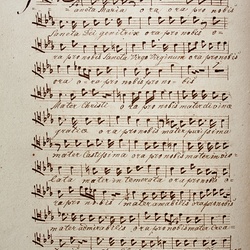 Sancta Maria ora ora pro nobis
Sancta Dei genitrix ora pro nobis o-
ra pro nobis Sancta Virgo Virginum ora pro nobis
ora o-ro pro nobis
Mater Christi ora pro nobis mater divina
gratia ora pro nobis mater purissima
mater castissima ora pro nobis mater invio-
lata mater intemerata ora pro nobis o-
ra pro nobis mater amabilis ora pro nobis
mater admirabilis ora pro nobis mater crea-